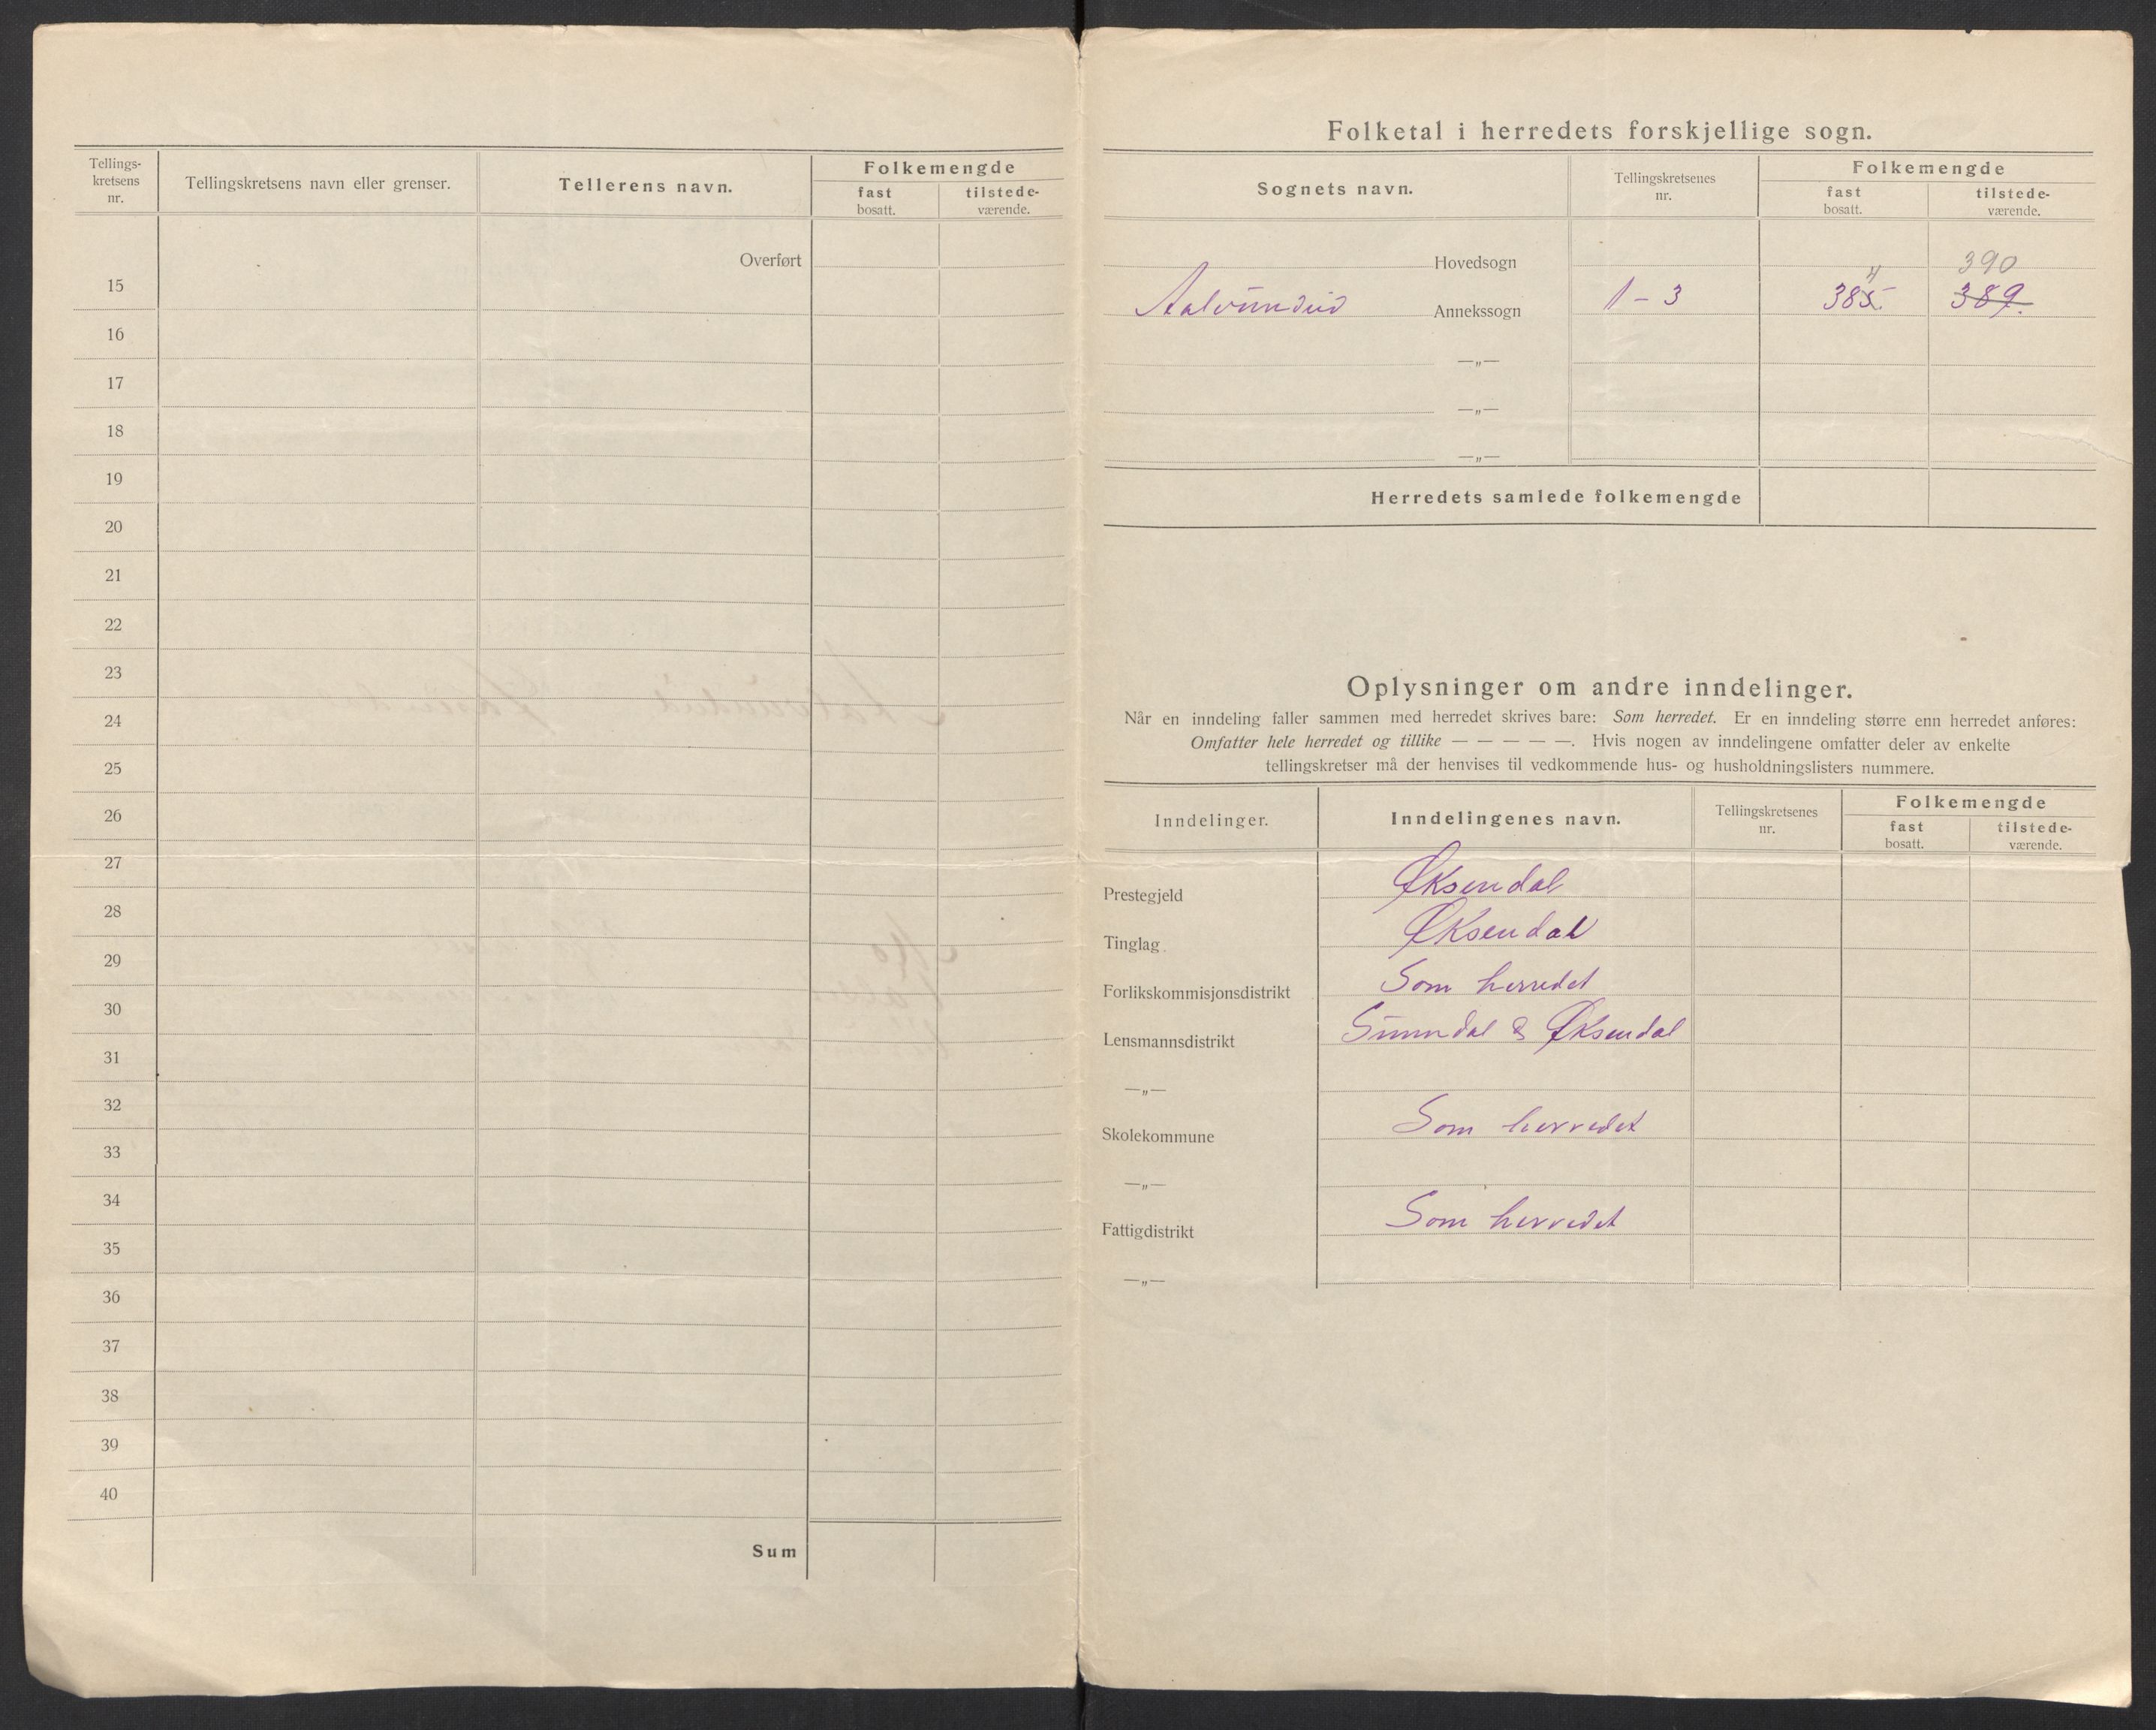 Tellings-
kretsens
nr.
Tellingskretsens navn eller grenser.
Tellerens navn.
Folkemengde
fast
bosatt.
tilstede-
værende.
Overført
15
16
17
18
19
20
21
22
23
24
25
26
27
28
29
30
31
32
33
34
35
36
37
38
39
40
Sum
Folketal i herredets forskjellige sogn.
Sognets navn.
Tellingskretsenes
nr.
Folkemengde
fast
bosatt.
tilstede-
værende.
Hovedsogn
390
4
Aalvundeid Annekssogn 1-3 385. 389.
—„—
—„—
—„—
Herredets samlede folkemengde
Oplysninger om andre inndelinger.
Når en inndeling faller sammen med herredet skrives bare: Som herredet. Er en inndeling større enn herredet anføres:
Omfatter hele herredet og tillike — — — — —. Hvis nogen av inndelingene omfatter deler av enkelte
tellingskretser må der henvises til vedkommende hus- og husholdningslisters nummere.
Inndelinger.
Inndelingenes navn.
Tellingskretsenes
nr.
Folkemengde
fast
bosatt.
tilstede-
værende.
Prestegjeld Øksendal
Tinglag Øksendal
Forlikskommisjonsdistrikt Som herredet
Lensmannsdistrikt Sunndal & Øksendal
—„—
Skolekommune Som herredet
—„—
Fattigdistrikt Som herredet
—„—